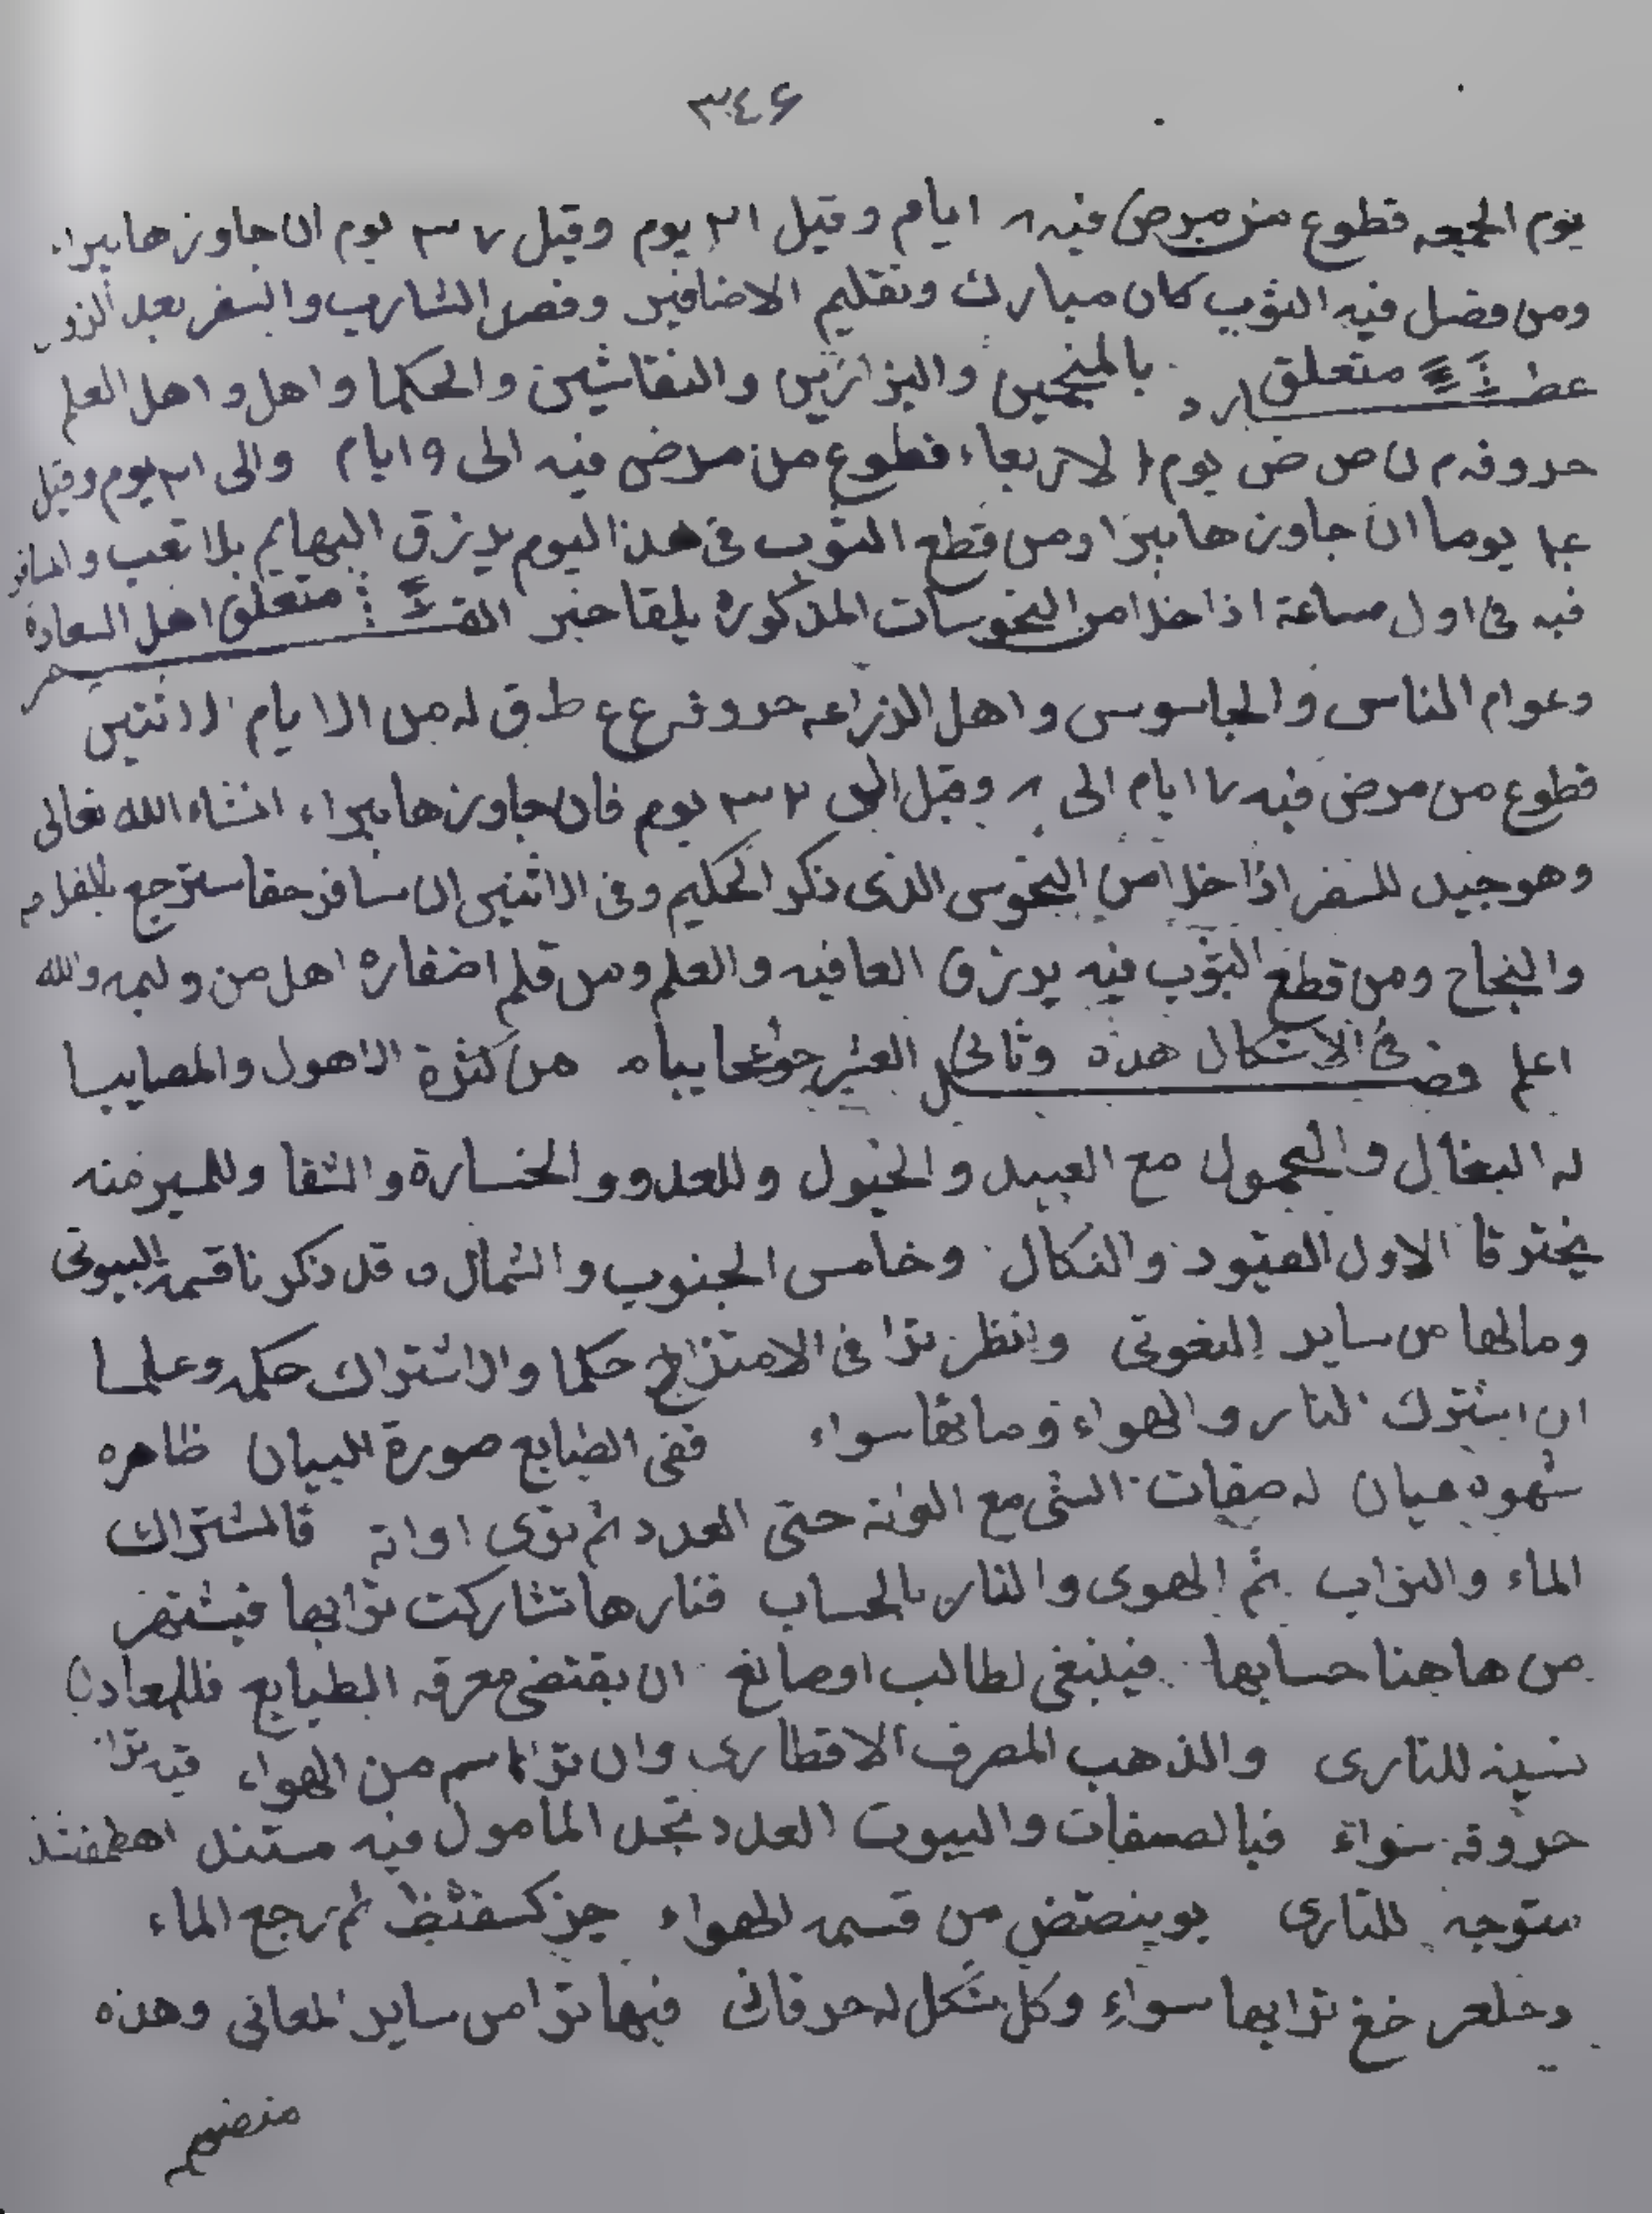 ٣٤٦
يوم الجمعه قطوع من مرض فيه ٨ ايام وقيل ٢١ يوم وقيل ٣٧ يوم ان جاوزها يبراء
ومن فضل فيه الثوب كان مبارك وتقليم الاضافير وقص الشارب والسفر بعد
عطارد متعلق بالمنجمين والبزازين والنقاشين والحكما واهل واهل العلم
حروفه م ن ص ض يوم الاربعاء قطوع من مرض فيه الى ٩ ايام والى ٢١ يوم وقيل
يوما ان جاوزها يبرا ومن قطع الثوب فى هذا اليوم يرزق البهايم بلا تعب والسافر
فيه فى اول ساعة اذا خلا من النحوسات المذكوره يلقا خير القمر متعلق اهل السعادة
وعوام الناس والجاسوس واهل الزراعه حروفه ع ط ق له من الايام الاثنين
قطوع من مرض فيه ٧ ايام الى ٨ وقيل الى ٣٢ يوم فان جاوزها يبراء انشاء الله تعالى
وهو جيد للسفر اذا خلا من النحوس الذى ذكر الحكيم وفى الاثنين ان سافر حقا سترجع بالفلاح
والنجاح ومن قطع الثوب فيه يرزق العافيه والعلم ومن قلم اضفاره اهل من وليمه والله
اعلم فصل فى الاشكال هذه وثالث العشر من كثرة الاهول والمصايبا
له البغال والحمول مع العبيد والخيول وللعدو والخسارة والشقا وللسير منه
الاول القيود والنكال وخامس الجنوب والشمال قد ذكرنا قسمة البيوتى
ومالها من ساير النعوتى وانظر ترا فى الامتزاج حكما والاشتراك حكمه وعلما
ان اشترك النار والهواء وماتها سواء ففى الطبايع صورة البيان ظاهره
شهود عيان له صفات الشى مع الوانه حتى العدد ثم ترى اواته فالشتراك
الماء والتراب ثم الهوى والنار بالحساب فنارها تشاركت ترابها
من هاهنا حسابها فينبغى لطالب اوصانع ان يقتضى معرفه الطبايع فللمعادن
نسبه للنارى والذهب المصرف الاقطارى وان ترا اسم من الهواء فيه ترا
حروفه سواء فبالصفات والبيوت العدد تجد المامول فيه مستند اهطمفشذ
متوجه للنارى بوينصتض من قسمه للهواء جزكسقثظ ثم رجع الماء
دحلعرخغ ترابها سواء وكل شكل له حرفان فيها ترا من ساير المعانى وهذه